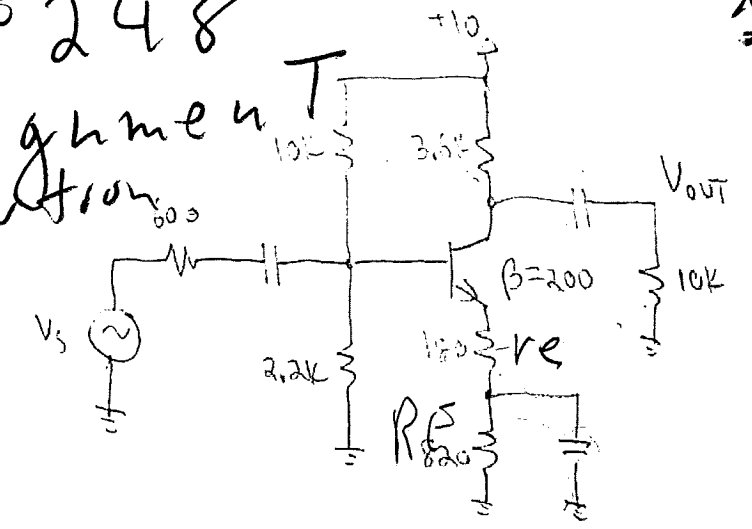 248
gnmenT
+10
10K
3.6K
VOUT
600
β=200
10K
VS
2.2K
180
re
RE
820